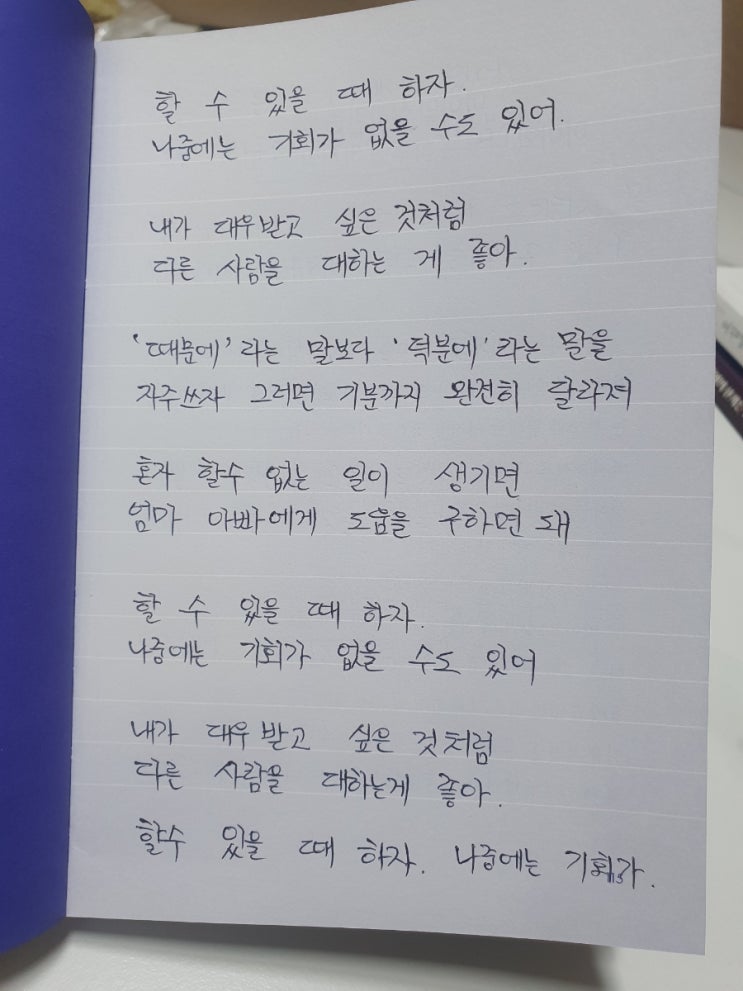 할 수 있을 때 하자.
나중에는 기회가 없을 수도 있어.
내가 대우받고 싶은 것처럼
다른 사람을 대하는 게 좋아.
'때문에'라는 말보다 '덕분에'라는 말을
자주쓰자 그러면 기분까지 완전히 달라져
혼자 할수 없는 일이 생기면
엄마 아빠에게 도움을 구하면 돼
할 수 있을 때 하자.
나중에는 기회가 없을 수도 있어
내가 대우 받고 싶은 것처럼
다른 사람을 대하는게 좋아.
할수 있을 때 하자. 나중에는 기회가.